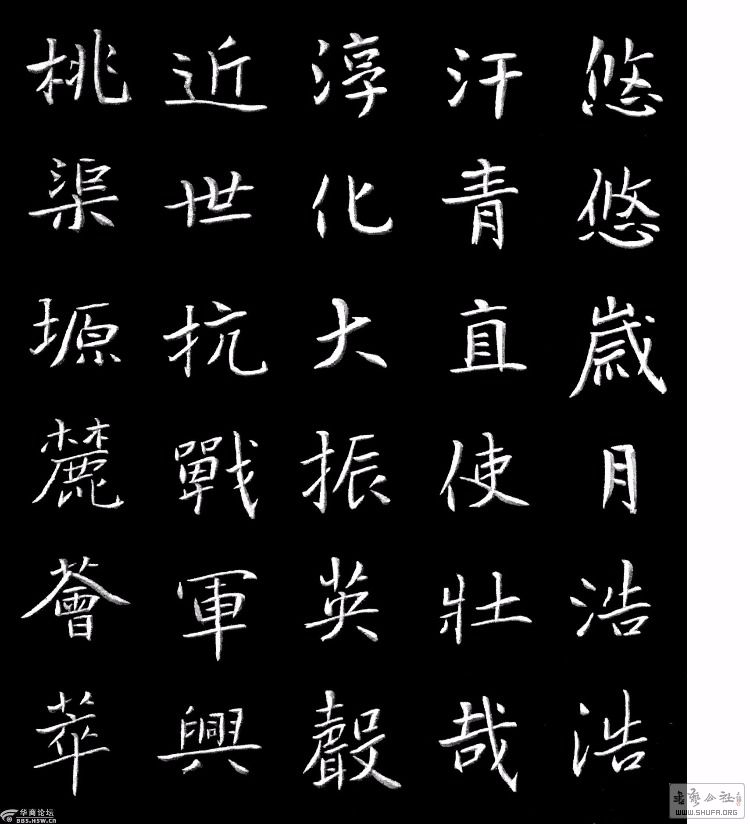 悠悠歲月浩浩
汗青直使壯哉
淳化大振英聲
近世抗戰軍興
桃渠塬麓薈萃
华商论坛
BBS.HSW.CN
WWW.SHUFA.ORG